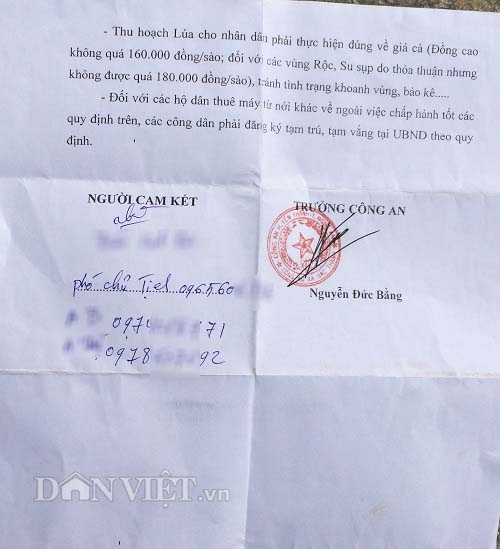 - Thu hoạch Lúa cho nhân dân phải thực hiện đúng về giá cả (Đồng cao
không quá 160.000 đồng/sào; đối với các vùng Rộc, Su sụp do thỏa thuận nhưng
không được quá 180.000 đồng/sào), tránh tình trạng khoanh vùng, bảo kê.....
- Đối với các hộ dân thuê máy từ nới khác về ngoài việc chấp hành tốt các
quy định trên, các công dân phải đăng ký tạm trú, tạm vắng tại UBND theo quy
định.
NGƯỜI CAM KẾT
TRƯỞNG CÔNG AN
phó chủ Tịch 0965.60
Nguyễn Đức Bằng
097 71
0978 92
DÂN VIỆT.vn